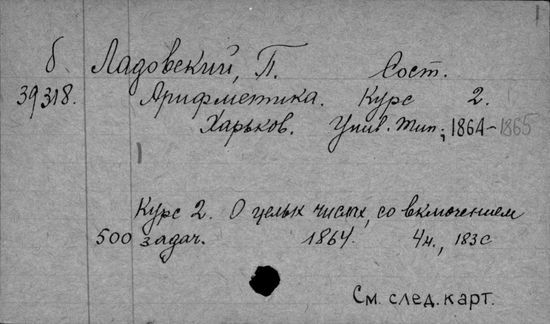 1
б Ладовский, П. Сост.
39318. Арифметика. Курс 2.
Харьков. Унив. тип., 1864-1865
Курс 2. О целых числах, со включением
500 задач. 1864. 4н., 183 с
См. след. карт.